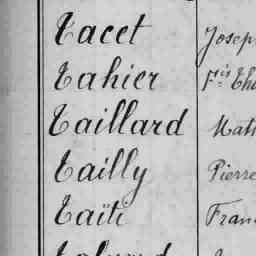 Tacet Josep
Tahier Fis
Taillard Math
Tailly Pierre
Taïti Fran